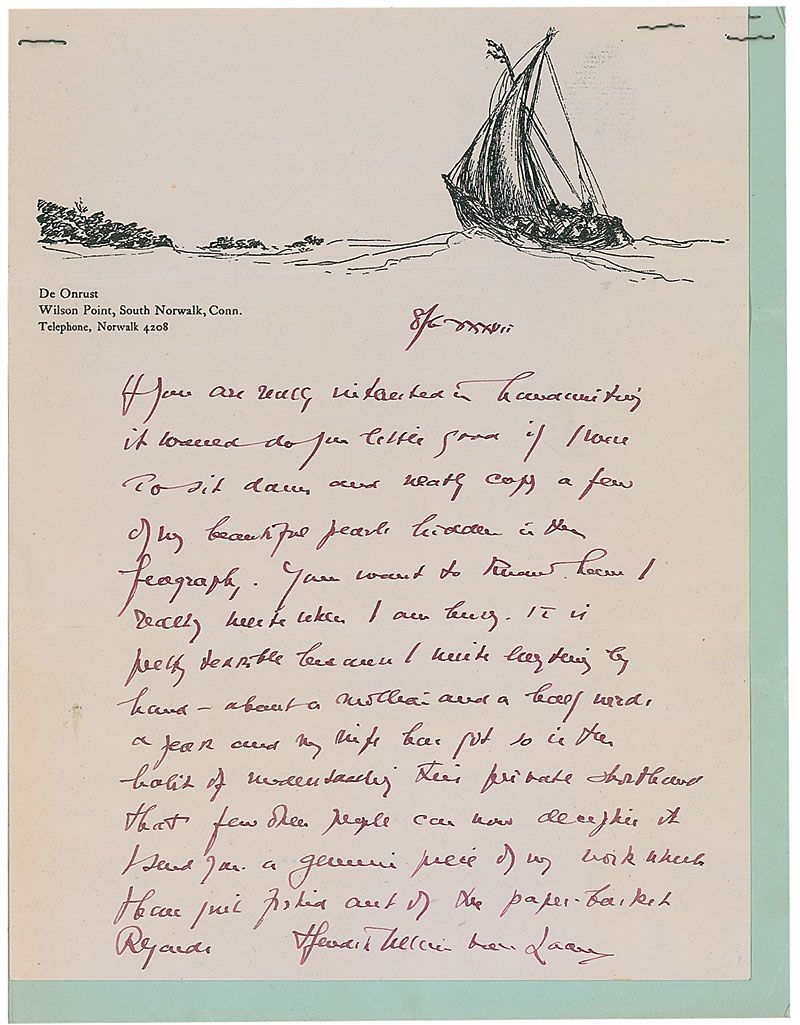 De Onrust
Wilson Point, South Norwalk, Conn.
Telephone, Norwalk 4208
8/6 xxxvii
If you are really interested in handwriting
it would do you little good if I were
to sit down and neatly copy a few
of my beautiful pearls hidden in the
Geography. You want to know how I
really write when I am busy. It is
pretty terrible because I write everything by
hand – about a million and a half words
a year and my wife has got so in the
habit of understanding this private shorthand
that few other people can now decipher it
I send you a genuine piece of my work which
I have just fished out of the paper-basket
Regards Hendrik Willem van Loon